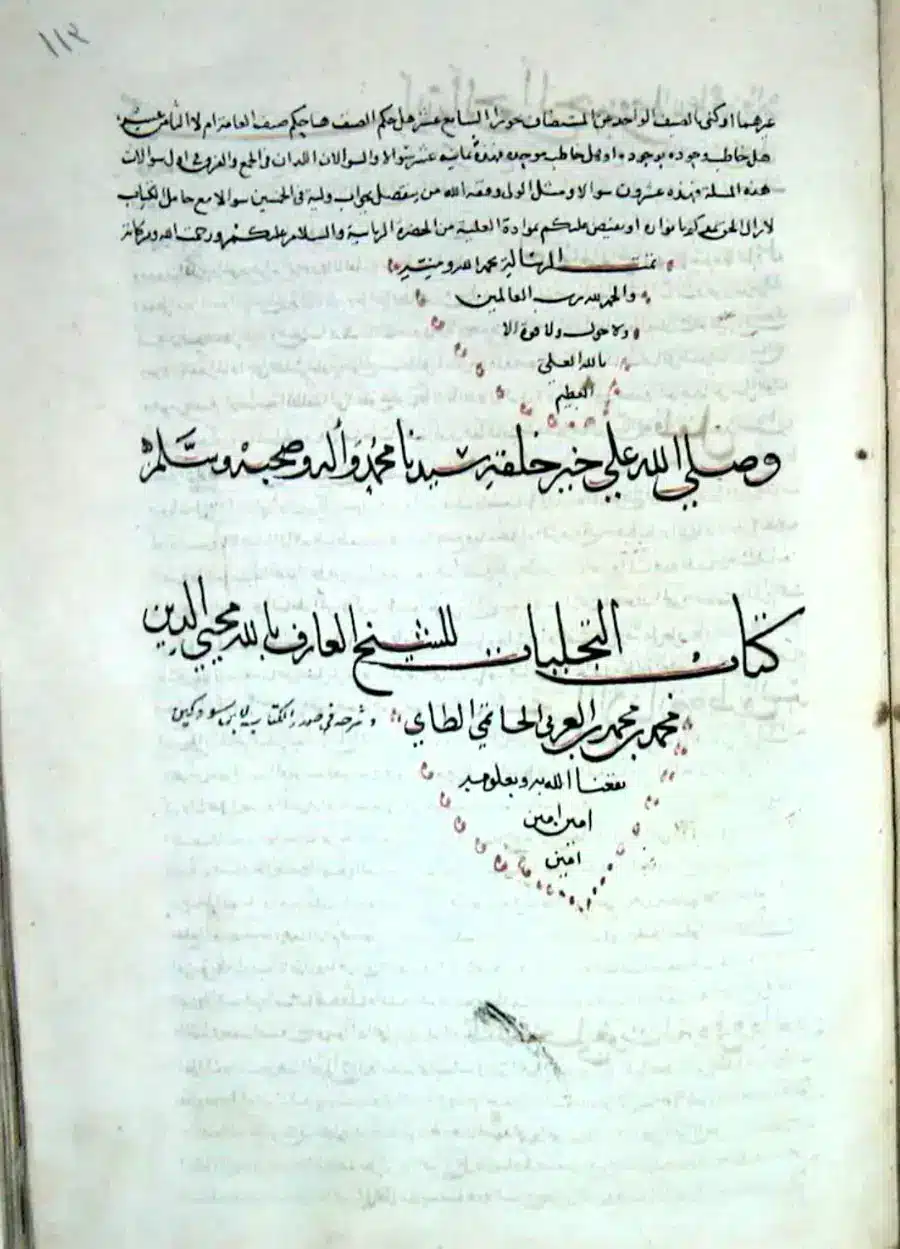 ١١٣
غيرهما او كنى بالصف الواحد عن المتضفات حوبرا السابع عشر هل حكم الصف هنا حكم صف العامة ام لا الثامن عشر
هل خاطب وجوده بوجوده او هل خاطب موجوده فهذه ثمانية عشر سوالا والسوالان اللذان في الجمع والفرق في اول سوالات
هذه المسئلة فهذه عشرون سوالا ومثل الولى وفقه الله من يتفضل بجواب وليه في الخمسين سوالا مع حامل الكتاب
لازال الحق معكم بانواره او يفيض عليكم عواده العلية من الحضرة الربانية والسلام عليكم ورحمة الله وبركاته
تمت الرسالة بحمد الله ومنته
والحمد لله رب العالمين
ولا حول ولا قوة الا
بالله العلي
العظيم
وصلي الله علي خير خلقه سيدنا محمد وأله وصحبه وسلم
كتاب التجليات للشيخ العارف بالله محيي الدين
محمد بن محمد بن العربي الحاتمي الطاي
وشرحه في صدر الكتاب لابن سودكين
نفعنا الله به وبعلومه
امين امين
امين